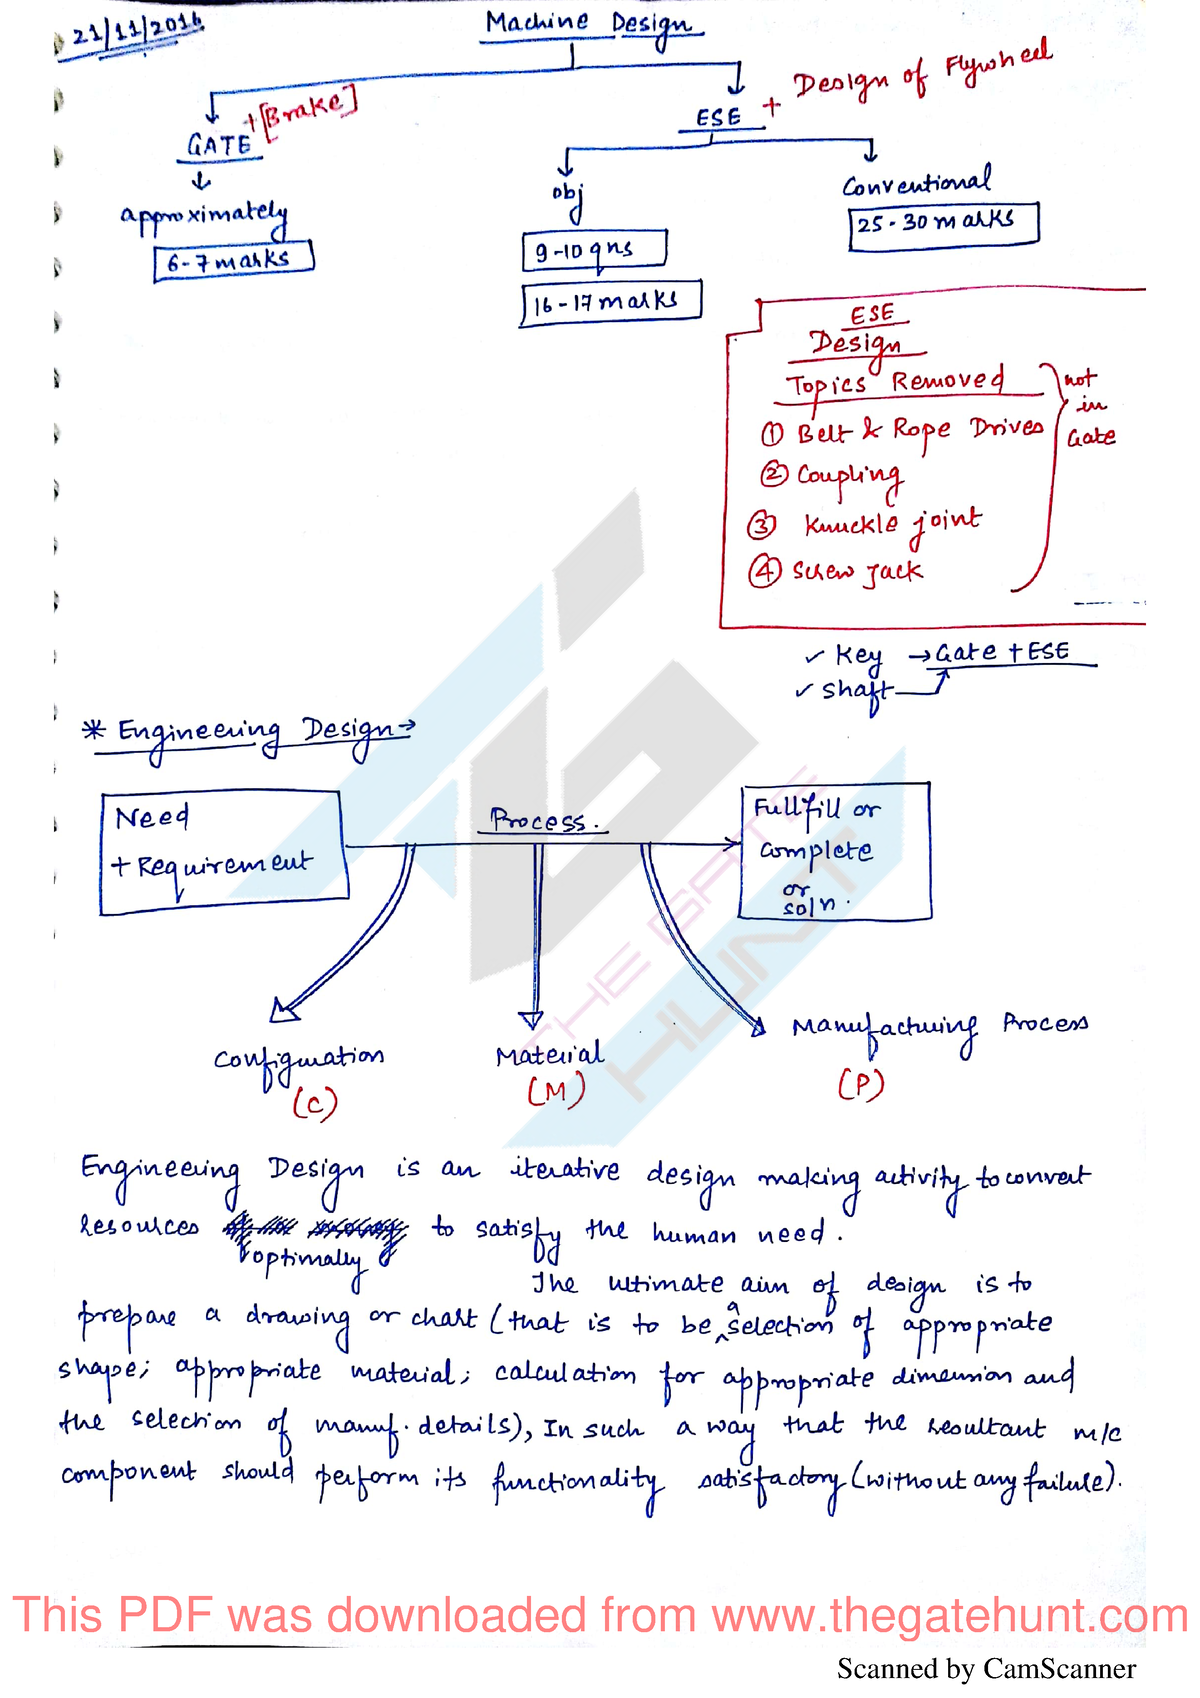 21/11/2016
Machine Design
GATE + [Brake]
ESE + Design of Flywheel
approximately
6-7 marks
obj
9-10 qns
16-17 marks
Conventional
25-30 marks
ESE
Design
Topics Removed
① Belt & Rope Drives
② Coupling
③ Knuckle joint
④ Screw Jack
not
in
Gate
✓ Key → Gate + ESE
✓ shaft
* Engineering Design →
Need
+ Requirement
Process.
Fullfill or
complete
or
soln.
Configuration
(C)
Material
(M)
Manufacturing Process
(P)
Engineering Design is an iterative design making activity to convert
resources optimally to satisfy the human need.
The ultimate aim of design is to
prepare a drawing or chart (that is to be a selection of appropriate
shape; appropriate material; calculation for appropriate dimension and
the selection of manuf. details), In such a way that the resultant m/c
component should perform its functionality satisfactory (without any failure).
THE GATE
HUNT
This PDF was downloaded from www.thegatehunt.com
Scanned by CamScanner